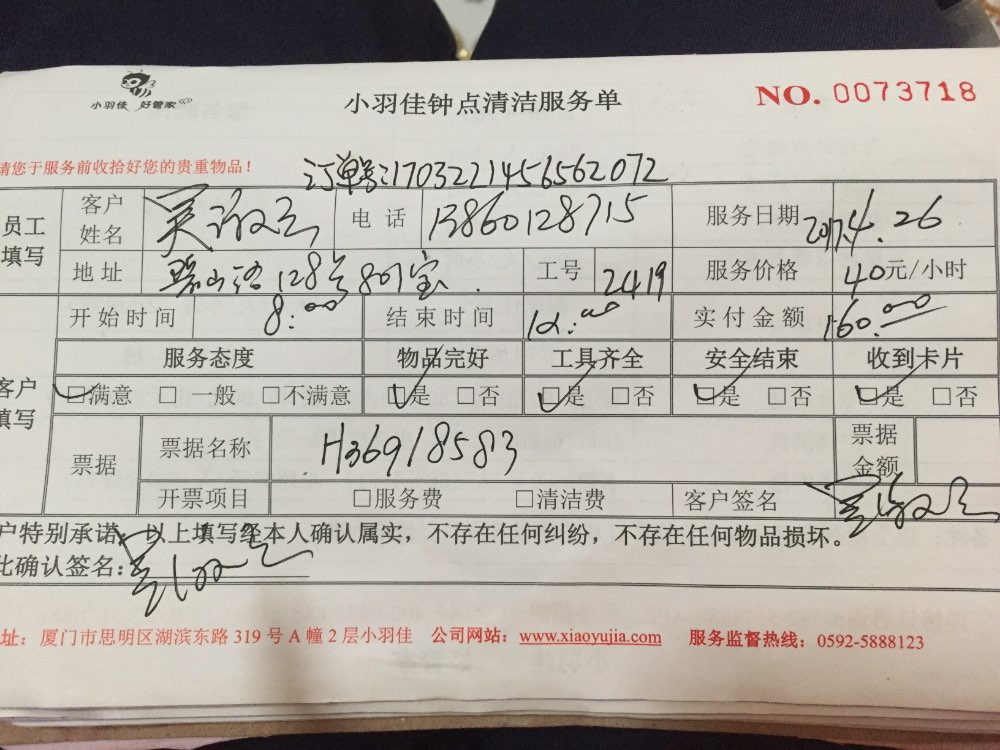 小羽佳 好管家
小羽佳钟点清洁服务单
NO. 0073718
请您于服务前收拾好您的贵重物品！
订单号:1703221456562072
员工填写 客户姓名 电话 13860128715 服务日期 2017.4.26
地址 128号 工号 2419 服务价格 40元/小时
开始时间 8:00 结束时间 12:00 实付金额 160.00
服务态度 物品完好 工具齐全 安全结束 收到卡片
客户填写 □满意 □一般 □不满意 □是 □否 □是 □否 □是 □否 □是 □否
票据 票据名称 H36918583 票据金额
开票项目 □服务费 □清洁费 客户签名
户特别承诺：以上填写经本人确认属实，不存在任何纠纷，不存在任何物品损坏。
此确认签名：
址：厦门市思明区湖滨东路 319 号 A 幢 2 层小羽佳 公司网站：www.xiaoyujia.com 服务监督热线：0592-5888123